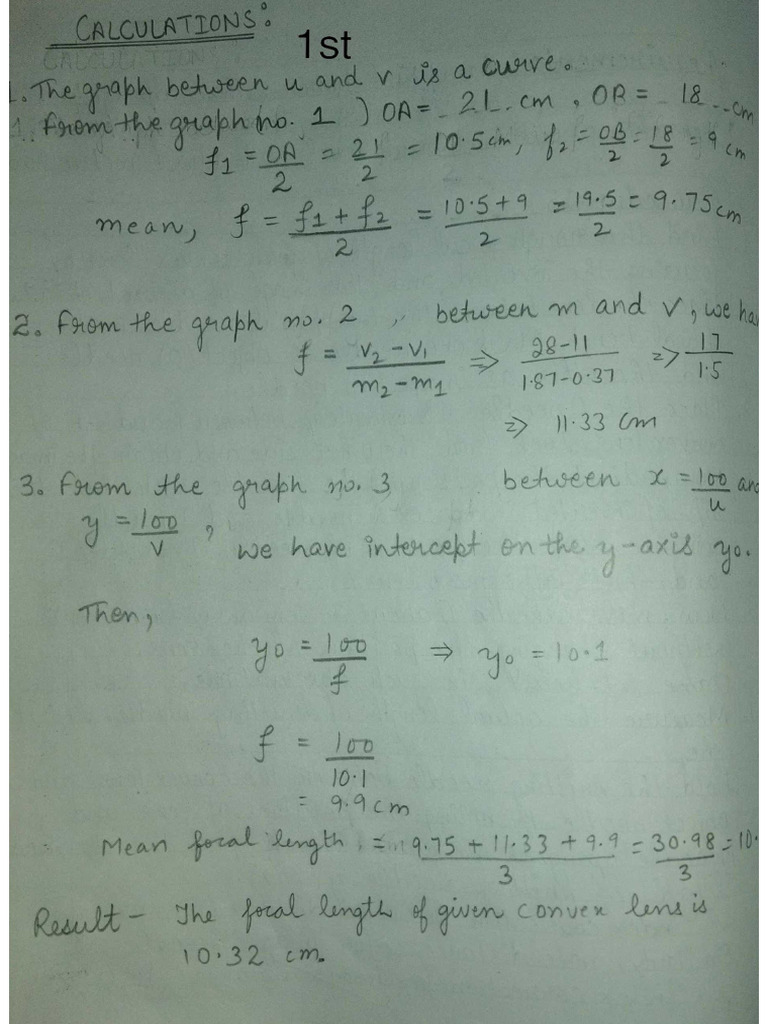 CALCULATIONS:
1st
1. The graph between u and v is a curve.
1. From the graph (no. 1 ) OA = 21 cm, OB = 18 cm
f1 = OA/2 = 21/2 = 10.5 cm, f2 = OB/2 = 18/2 = 9 cm
mean, f = f1 + f2/2 = 10.5 + 9/2 = 19.5/2 = 9.75 cm
2. From the graph no. 2, between m and v, we ha
f = v2 - v1/m2 - m1 => 28-11/1.87-0.37 => 17/1.5
=> 11.33 cm
3. From the graph no. 3 between x = 100/u and
y = 100/v, we have intercept on the y-axis y0.
Then,
y0 = 100/f => y0 = 10.1
f = 100/10.1
= 9.9 cm
Mean focal length = 9.75 + 11.33 + 9.9/3 = 30.98/3 = 10.
Result - The focal length of given convex lens is
10.32 cm.